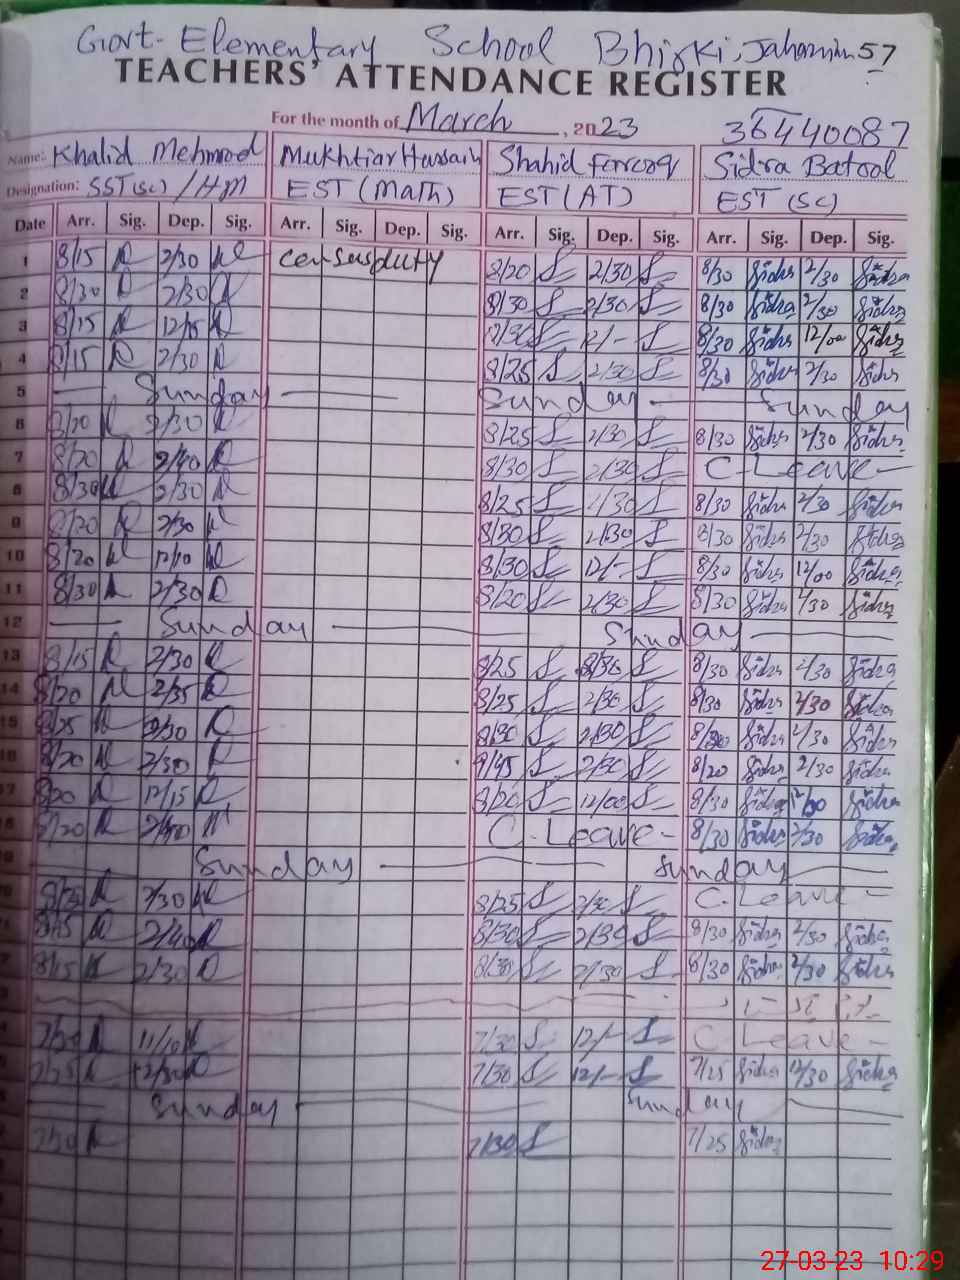 Govt. Elementary School Bhirki, Jahanian 57
TEACHERS' ATTENDANCE REGISTER
For the month of March, 2023 36440087
Name: Khalid Mehmood Mukhtiar Hussain Shahid Farooq Sidra Batool
Designation: SST(SC)/HM EST (Math) EST (AT) EST (SC)
Date Arr. Sig. Dep. Sig. Arr. Sig. Dep. Sig. Arr. Sig. Dep. Sig. Arr. Sig. Dep. Sig.
1 8/15 2/30 Census duty 8/20 2/30 8/30 Sidra 2/30 Sidra
2 8/30 2/30 8/30 2/30 8/30 Sidra 2/30 Sidra
3 8/15 12/15 12/- 8/30 Sidra 12/00 Sidra
4 8/15 2/30 8/25 2/30 8/30 Sidra 2/30 Sidra
5 Sunday Sunday Sunday
6 8/20 2/30 8/25 2/30 8/30 Sidra 2/30 Sidra
7 8/20 2/40 8/30 2/30 C. Leave
8 8/30 2/30 8/25 2/30 8/30 Sidra 2/30 Sidra
9 8/20 2/30 8/30 2/30 8/30 Sidra 2/30 Sidra
10 8/20 12/10 8/30 12/- 8/30 Sidra 12/00 Sidra
11 8/30 2/30 8/20 2/30 8/30 Sidra 2/30 Sidra
12 Sunday Sunday
13 8/15 2/30 8/25 2/30 8/30 Sidra 2/30 Sidra
14 8/20 2/35 8/25 2/30 8/30 Sidra 2/30 Sidra
15 8/25 2/30 8/30 2/30 Sidra 2/30 Sidra
8/20 2/30 2/30 8/20 Sidra 2/30 Sidra
8/20 12/15 8/20 12/00 8/30 Sidra Sidra
8/20 C. Leave 8/30 Sidra 2/30 Sidra
Sunday Sunday
8/25 2/30 8/25 2/30 C. Leave
2/40 8/30 2/30 8/30 Sidra 2/30 Sidra
8/15 2/30 8/30 2/30 8/30 Sidra 2/30 Sidra
7/30 11/10 7/30 12/- C Leave
7/30 12/- 7/25 Sidra 12/30 Sidra
Sunday Sunday
7/30 7/30 7/25 Sidra
27-03-23 10:29